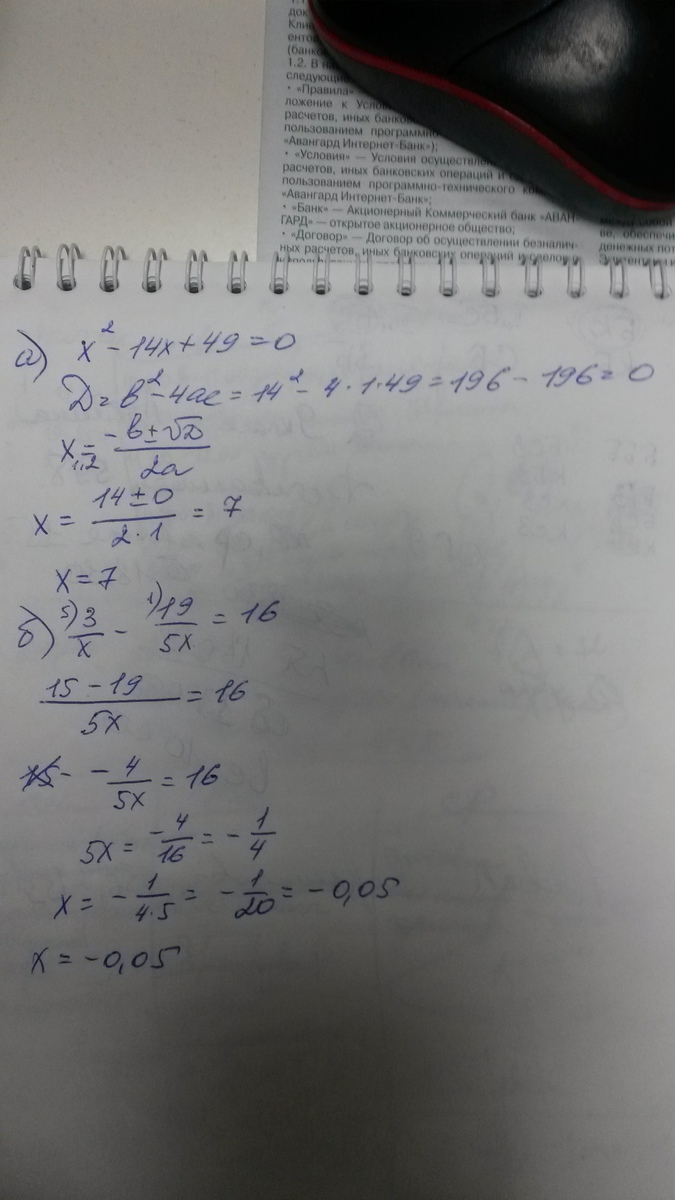 док
Клие
(банко
1.2. В на
следующие
• «Правила»
ложение к Усло
расчетов, иных банко
пользованием программно
«Авангард Интернет-Банк»);
• «Условия» — Условия осуществле
расчетов, иных банковских операций и
пользованием программно-технического ко
«Авангард Интернет-Банк»;
• «Банк» — Акционерный Коммерческий банк «АВАН-
ГАРД» — открытое акционерное общество;
• «Договор» — Договор об осуществлении безналич-
ных расчетов, иных банковских операций и
между собой
ве, обеспечи
денежных пот
а) x² - 14x + 49 = 0
D = b² - 4ac = 14² - 4 · 1 · 49 = 196 - 196 = 0
x₁,₂ = (-b ± √D) / 2a
x = (14 ± 0) / (2 · 1) = 7
x = 7
б) ⁵⁾3/x - ¹⁾19/5x = 16
(15 - 19) / 5x = 16
- 4/5x = 16
5x = -4/16 = - 1/4
x = - 1/(4·5) = - 1/20 = - 0,05
x = - 0,05